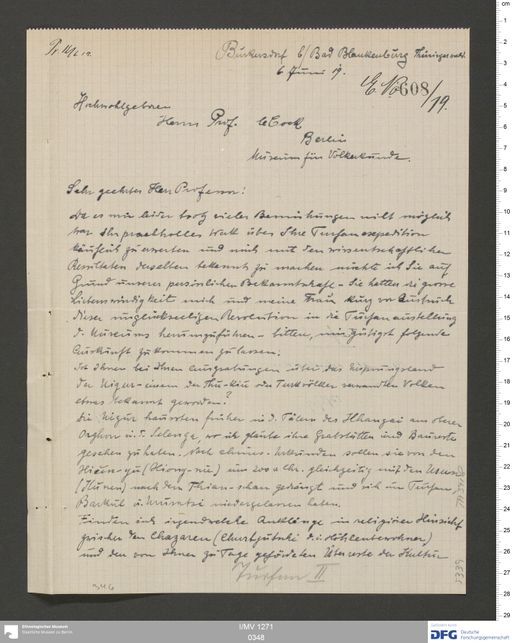 Pr. 11/6 19.
Burkersdorf b/ Bad Blankenburg Thüringerwald.
6 Juni 19.
E No 608/19.
Hochwohlgeboren
Herrn Prof. le Cock
Berlin
Museum für Völkerkunde.
Sehr geehrter Herr Professor!
da es mir leider trotz vieler Bemühungen nicht möglich
war Ihr prachtvolles Werk über Ihre Turfanexpedition
käuflich zu erwerben und mich mit den wissentschaftlichen
Resultaten derselben bekannt zu machen möchte ich Sie auf
Grund unserer persönlichen Bekanntschaft - Sie hatten die grosse
Liebenswürdigkeit mich und meine Frau kurz vor Ausbruch
dieser unglückseeligen Revolution in die Turfanausstellung
d. Museums herumzuführen - bitten, mir gütigst folgende
Auskunft zukommen zu lassen.
Ist Ihnen bei Ihren Ausgrabungen über das Ursprungsland
der Uigur - einem den Thu-kiu oder Turkvölker verwandten Volkes
etwas bekannt geworden?
die Uigur hausten früher in d. Tälern des Khangai am oberen
Orghon u. d. Selenga, wo ich glaube ihre Grabstätten und Baureste
gesehen zu haben. Nach chines. Urkunden sollen sie von den
Hieun-yu (Hiong-nu) um 200 a Chr. gleichzeitig mit den Usun
(Hunen) nach den Thian-schan gedrängt und sich in Turfan
Barkul u. Urumtsi niedergelassen haben.
Finden sich irgendwelche Anklänge in religiöser Hinsicht
zwischen den Chazaren d. i. Höhlenbewohner)
und den von Ihnen zu Tage geförderten Überreste der Kultur
Turfan II
346
I/MV 1271
0348
Ethnologisches Museum
Staatliche Museen zu Berlin
DFG Deutsche
Forschungsgemeinschaft